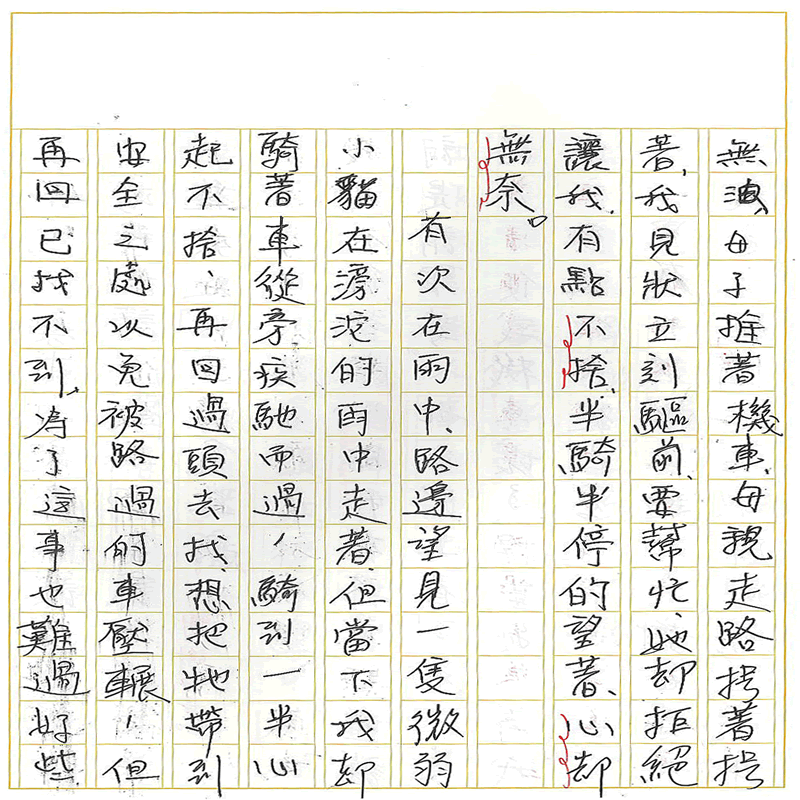 無油、母子推著機車、母親走路拐著拐
著、我見狀立刻驅前、要幫忙、她却拒絕
讓我、有點不捨、半騎半停的望著、心却
無奈。
有次在雨中、路邊望見一隻微弱
小貓在滂沱的雨中走著、但當下我却
騎著車從旁疾馳而過、騎到一半心
起不捨、再回過頭去找、想把牠帶到
安全之處以免被路過的車壓輾、但
再回已找不到、為了這事也難過好些